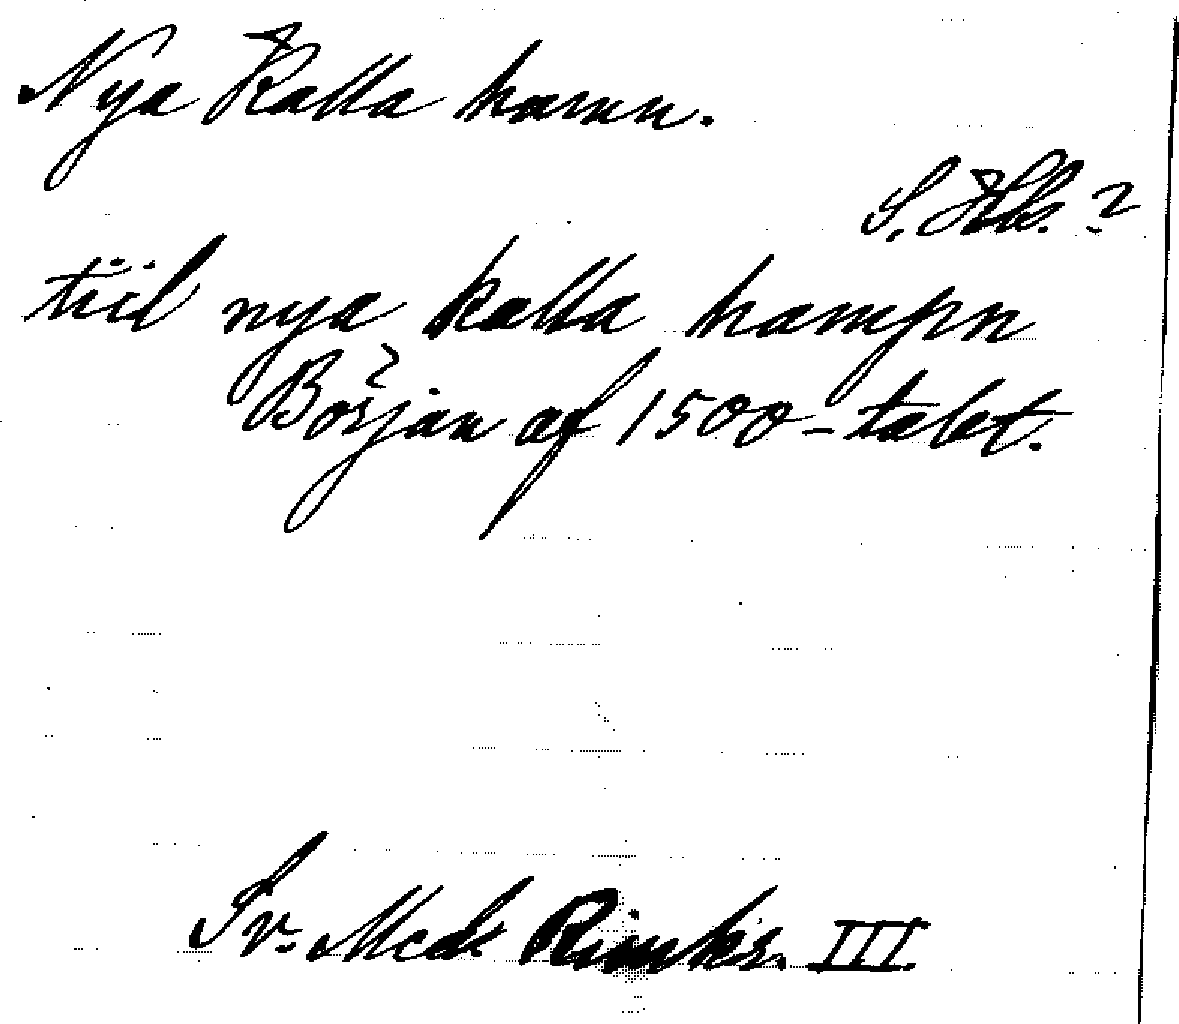 Nya Kalla hamn.
S. Hbs. ?
tiil nya kalla hampn
Början af 1500-talet.
Sv. Med. Rimkr. III